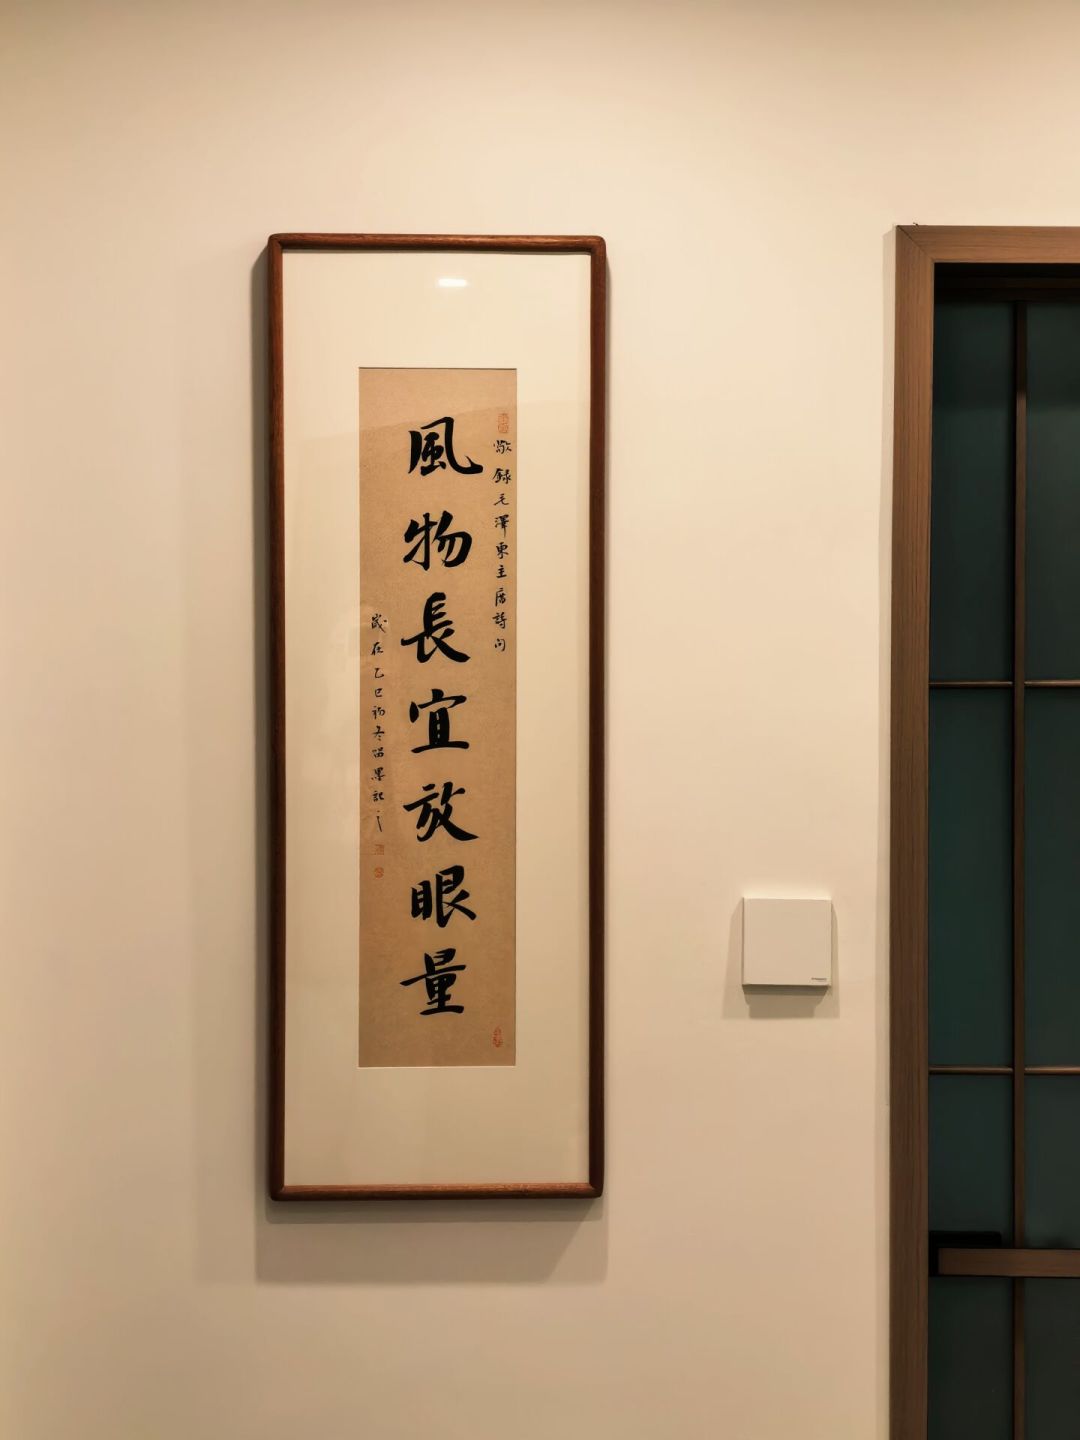 敬録毛澤東主席詩句
風物長宜放眼量
歲在乙巳初冬留墨記之